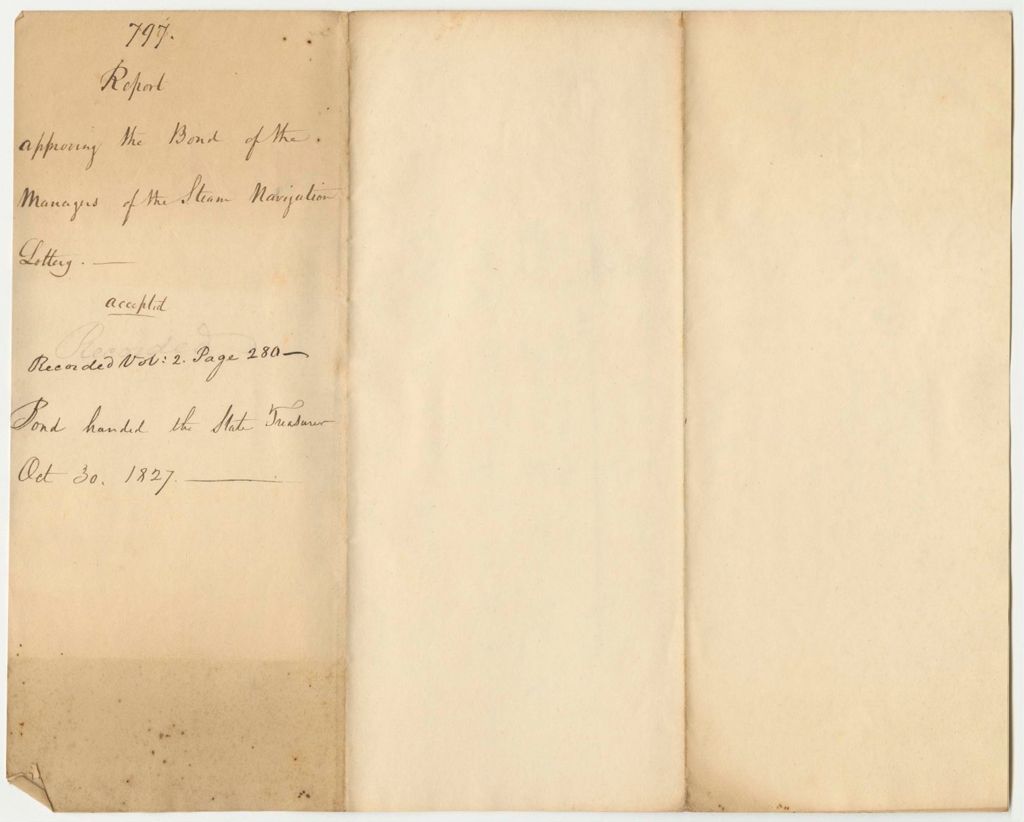 797.
Report
approving the Bond of the
Managers of the Steam Navigation
Lottery. —
accepted
Recorded Vol: 2. Page 280—
Bond handed the State Treasurer
Oct 30. 1827. ———